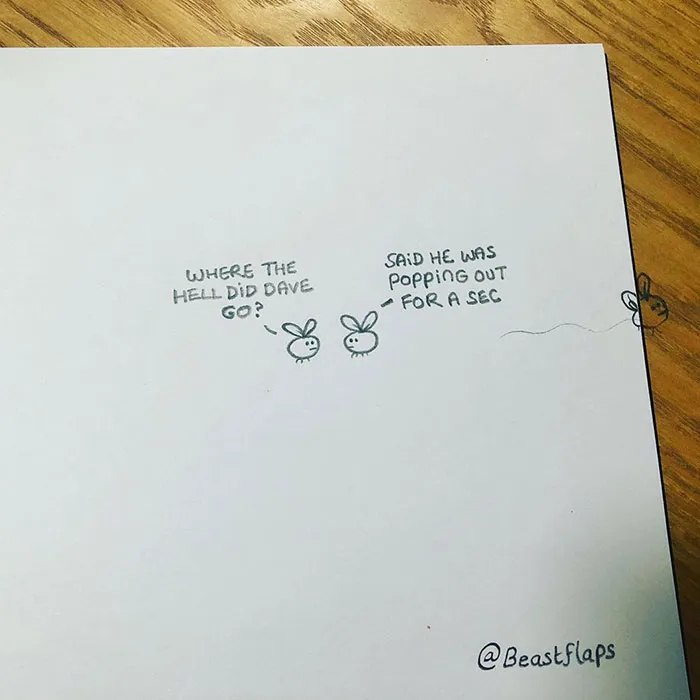 WHERE THE
HELL DID DAVE
GO?
SAID HE WAS
POPPING OUT
FOR A SEC
@Beastflaps